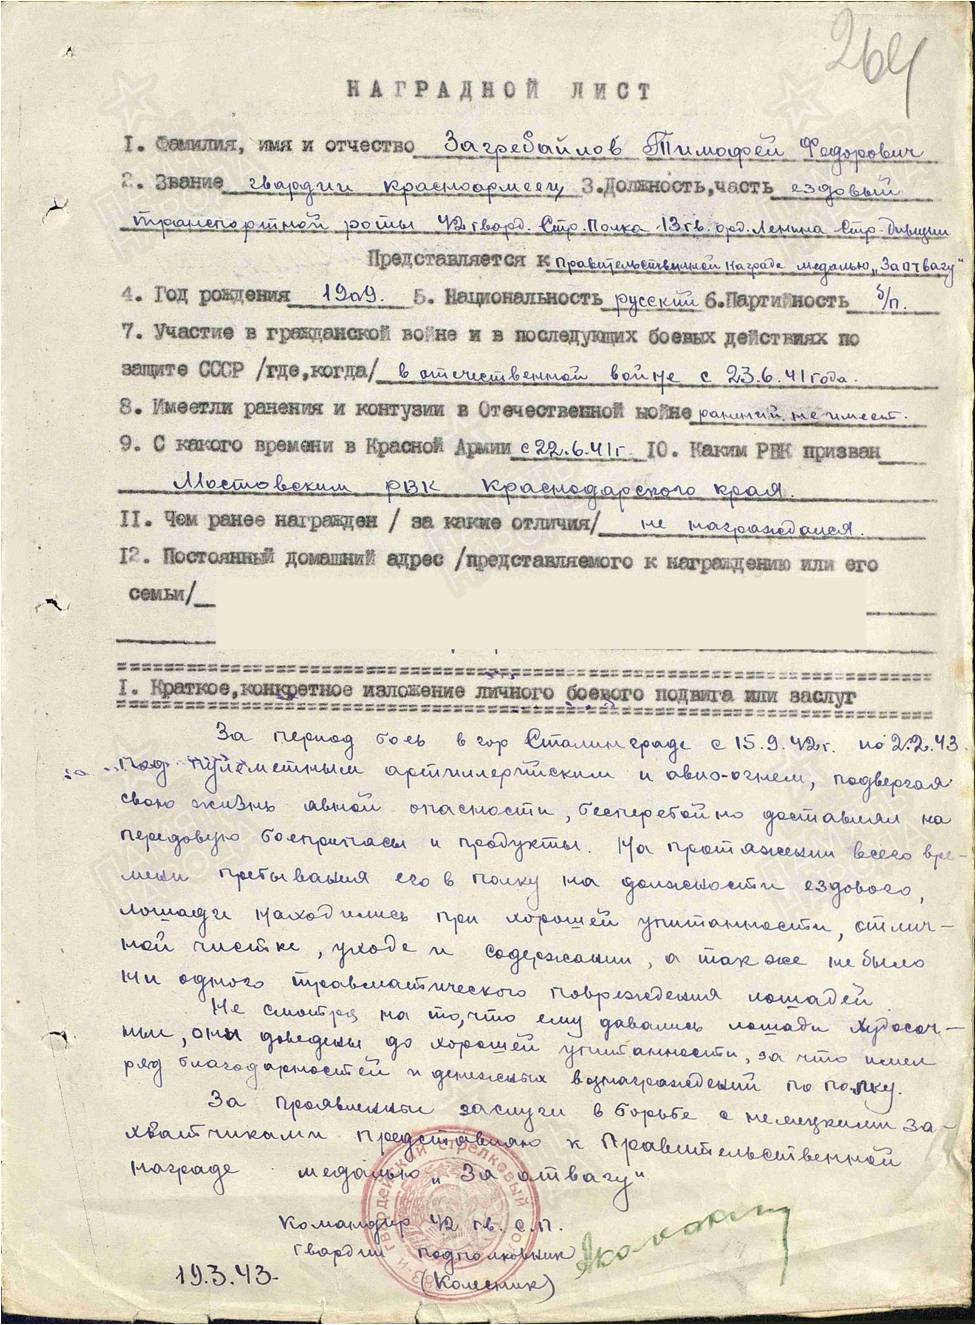 264
НАГРАДНОЙ ЛИСТ
1. Фамилия, имя и отчество Загребайлов Тимофей Федорович
2. Звание гвардии красноармеец 3. Должность, часть ездовый
транспортной роты 42 гвард. Стр. Полка 13 гв. орд. Ленина Стр. Дивизии
Представляется к правительственной награде медалью „За отвагу"
4. Год рождения 1909. 5. Национальность русский 6. Партийность б/п.
7. Участие в гражданской войне и в последующих боевых действиях по
защите СССР /где, когда/ в отечественной войне с 23.6.41 года.
8. Имеет ли ранения и контузии в Отечественной войне ранений не имеет.
9. С какого времени в Красной Армии с 22.6.41 г. 10. Каким РВК призван
Мостовским РВК Краснодарского края.
11. Чем ранее награжден / за какие отличия/ не награждался.
12. Постоянный домашний адрес /представляемого к награждению или его
семьи/
1. Краткое, конкретное изложение личного боевого подвига или заслуг
За период боев в гор Сталинграде с 15.9.42 г. по 2.2.43.
под пулеметным артиллерийским и авио-огнем, подвергая
свою жизнь явной опасности, бесперебойно доставлял на
передовую боеприпасы и продукты. На протяжении всего вре-
мени пребывания его в полку на должности ездового,
лошади находились при хорошей упитанности, отлич-
ной чистке, уходе и содержании, а так же не было
ни одного травматического повреждения лошадей.
Не смотря на то, что ему давались лошади худосоч-
ные, они доведены до хорошей упитанности, за что имел
ряд благодарностей и денежных вознаграждений по полку.
За проявленные заслуги в борьбе с немецкими за-
хватчиками представляю к Правительственной
награде медалью „За отвагу"
Командир 42 гв. С.П.
гвардии подполковник
19.3.43. (Колесник)